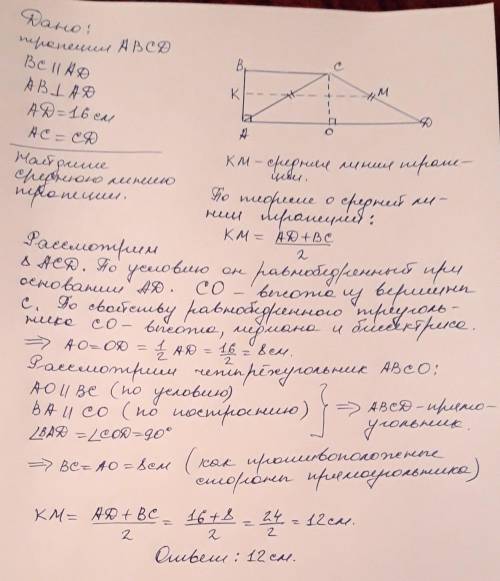 Дано:
трапеция ABCD
BC ∥ AD
AB ⊥ AD
AD = 16 см
AC = CD
Найдите
среднюю линию
трапеции.
B C
K M
A O D
KM - средняя линия трапе-
ции.
По теореме о средней ли-
нии трапеции:
KM = (AD + BC)/2
Рассмотрим
Δ ACD. По условию он равнобедренный при
основании AD. CO - высота из вершины
C. По свойству равнобедренного треуголь-
ника CO - высота, медиана и биссектриса.
⇒ AO = OD = 1/2 AD = 16/2 = 8 см.
Рассмотрим четырёхугольник ABCO:
AO ∥ BC (по условию)
BA ∥ CO (по построению)
∠BAD = ∠COD = 90°
} ⇒ ABCD - прямо-
угольник.
⇒ BC = AO = 8 см (как противоположные
стороны прямоугольника)
KM = (AD + BC)/2 = (16 + 8)/2 = 24/2 = 12 см.
Ответ: 12 см.